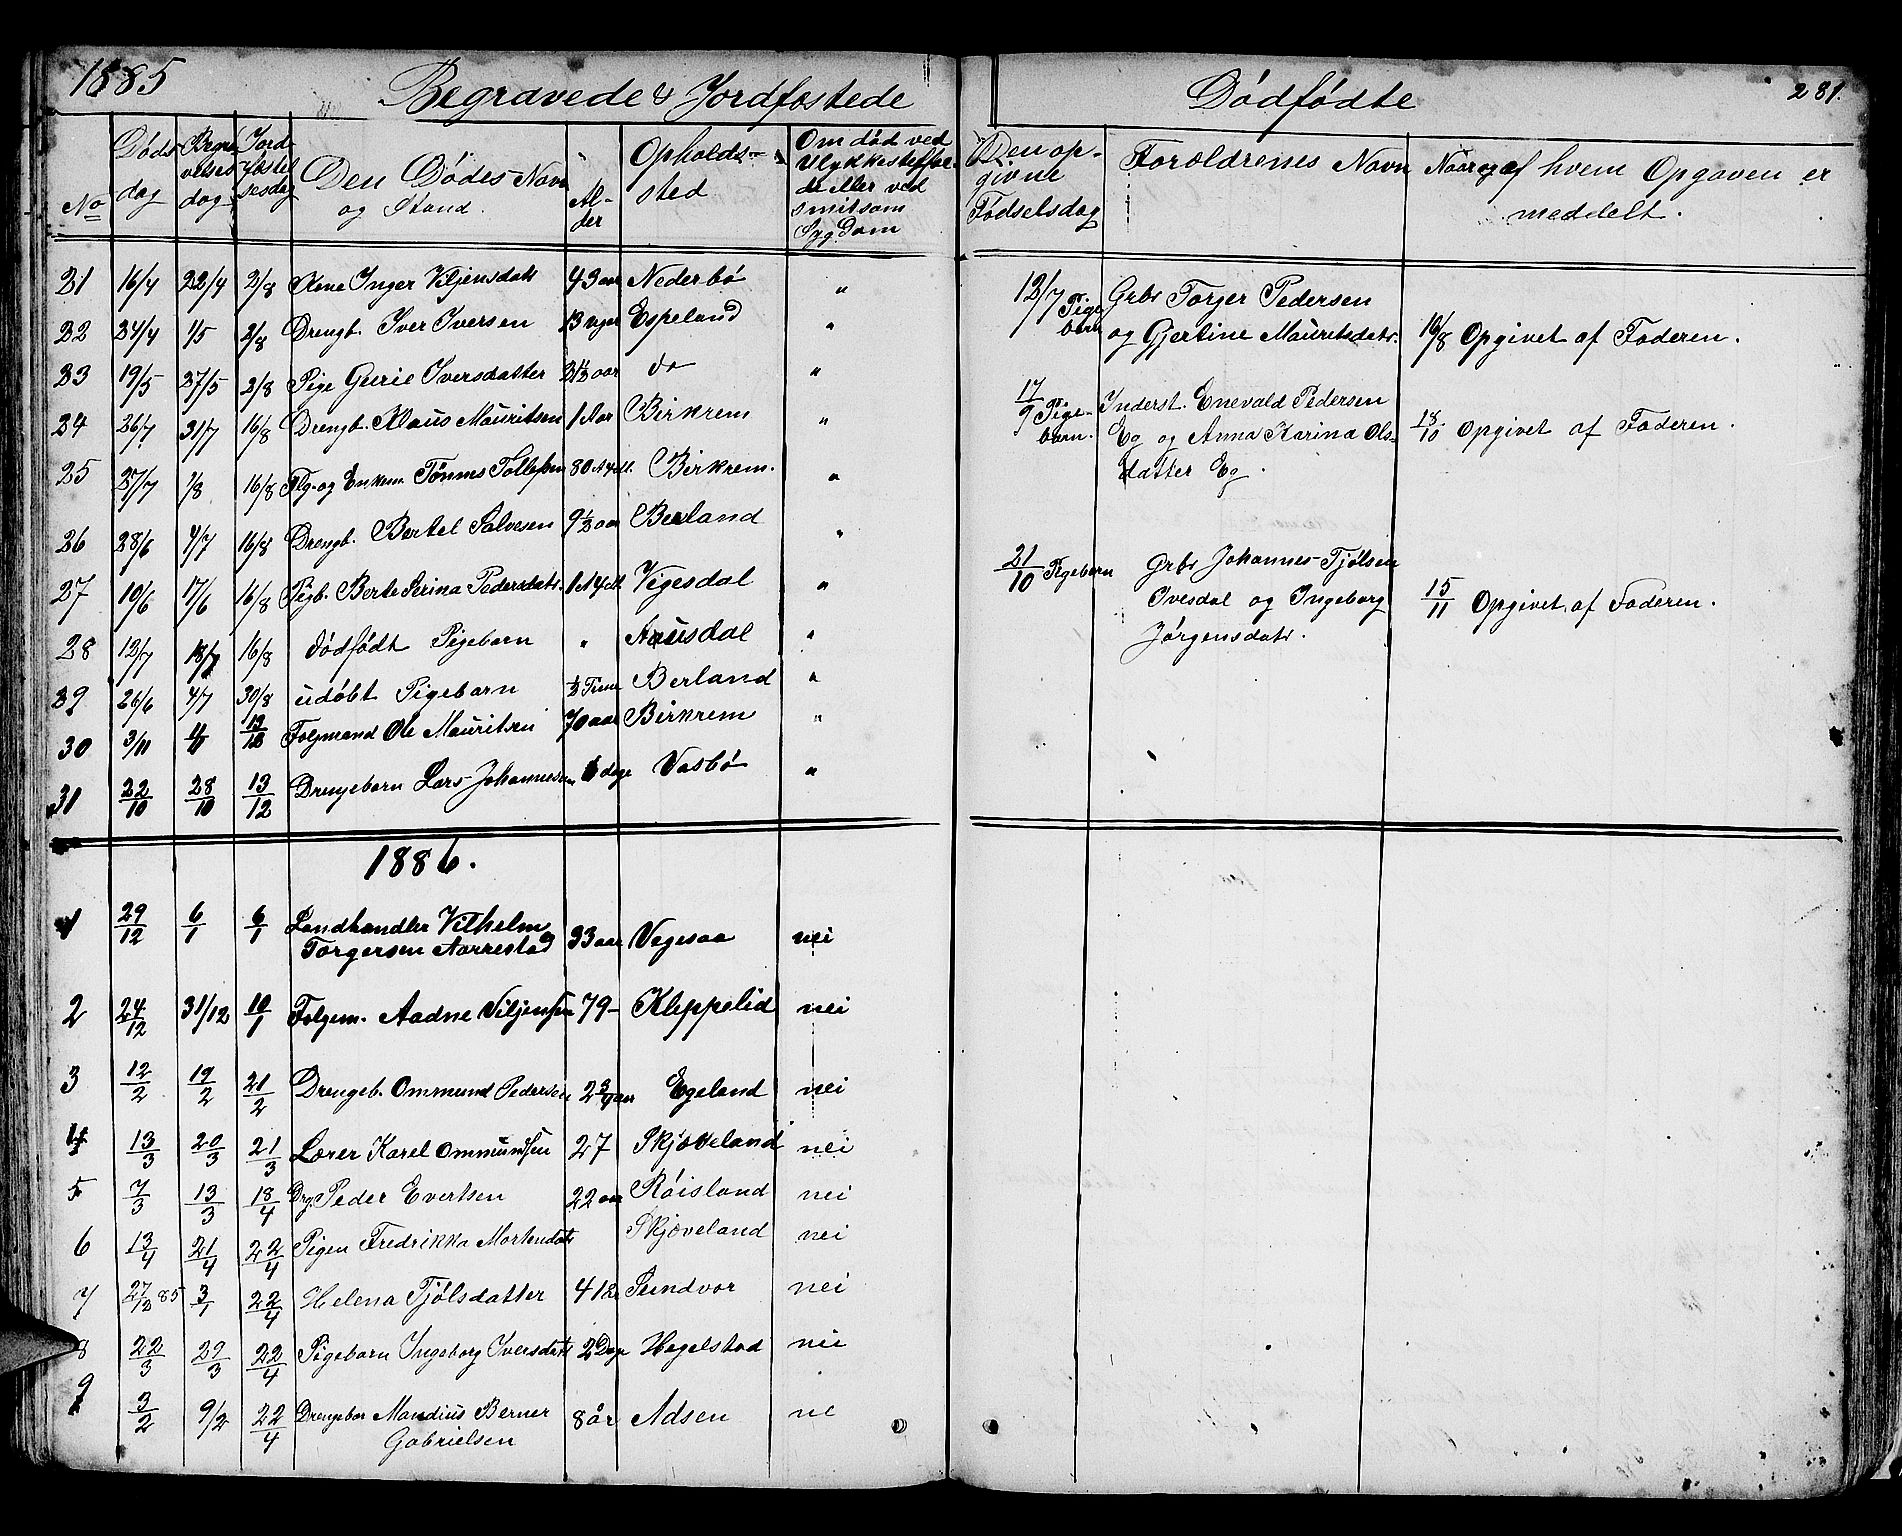 1885 Begravede & Jordfæstede
No Døds- dag Begravelses dag Jordfæstelsesdag Den Dødes Navn og Stand. Al- der Opholds- sted Om død ved Ulykkestilfælde eller ved smitsom Sygdom
21 16/4 22/4 2/8 Inger Viljensdatr 43 aar Nederbö "
22 24/4 1/5 2/8 Drengb. Iver Iversen 13 uger Espeland "
23 19/5 27/5 2/8 Pige Gurie Iversdatter 2 1/2 aar do "
24 26/7 31/7 16/8 Drengb. Klaus Mauritsen 1 Aar Birkrem "
25 27/7 1/8 16/8 Flg. og Enkem Tönnes Tollefsen 80 Birkrem. "
26 28/6 4/7 16/8 Drengb. Bertel Salvesen 9 1/2 aar Berland "
27 10/6 17/6 16/8 Pigb. Berte Serina Pedersdatr. 1 Vigesdal "
28 12/7 18/7 16/8 dödfödt Pigebarn " Aarsdal "
29 26/6 4/7 30/8 udöbt Pigebarn 1/2 Time Berland "
30 3/11 Folgmand Ole Mauritsen 70 aar Birkrem "
31 22/10 28/10 13/12 Drengebarn Lars Johannessen dage Vasbö "
1886.
1 29/12 6/1 6/1 Landhandler Vilhelm
Torgersen Aarrestad 33 aar Vegesaa nei
2 24/12 31/12 10/1 Folgem. Aadne Viljensen 79- Kleppelid nei
3 12/2 19/2 21/2 Drengeb. Ommund Pedersen 2 3/4 aar Egeland nei
4 13/3 20/3 21/3 Lærer Karel Ommundsen 27 Skjæveland nei
5 7/3 13/3 18/4 Drg. Peder Evertsen 22 aar Röisland nei
6 13/4 21/4 22/4 Pigen Fredrikka Mortensdatr Skjæveland nei
7 27/12 85 3/1 22/4 Helena Tjölsdatter 41 Sundvor nei
8 22/3 29/3 22/4 Pigebarn Ingeborg Iversdatr 2 Dage Hegelstad nei
9 3/2 9/2 22/4 Drengebar Mandius Berner
Gabrielsen 8 år Adsen ne
Dödfödte 281.
Den op- givne Födselsdag Forældrenes Navn Naar og af hvem Opgaven er meddelt.
12/7 Pige barn Grbr Torger Pedersen
og Gjertine Mauritsdatr. 16/8 Opgivet af Faderen.
17/9 Pige- barn. Inderst. Enevald Pedersen
Eg og Anna Karina Ols- 18/10 Opgivet af Faderen.
datter Eg.
21/10 Pigebarn Grbr Johannes Tjölsen
Ivesdal og Ingeborg 15/11 Opgivet af Faderen.
Jörgensdatr.